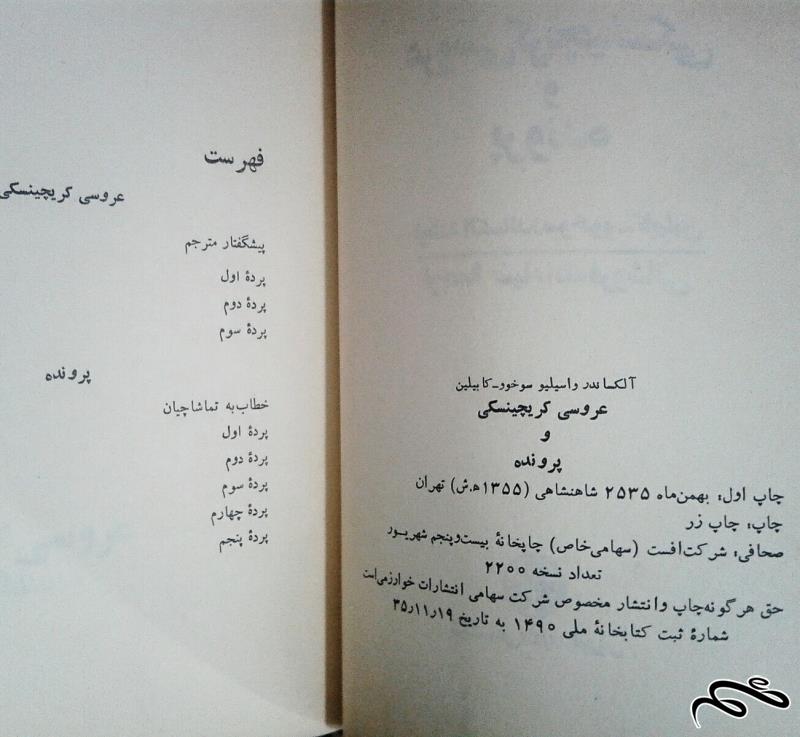 آلکساندر واسیلیو سوخوو-کابیلین
عروسی کریچینسکی
و
پرونده
چاپ اول: بهمن‌ماه ۲۵۳۵ شاهنشاهی (۱۳۵۵ ه.ش) تهران
چاپ: چاپ زر
صحافی: شرکت افست (سهامی خاص) چاپخانهٔ بیست‌وپنجم شهریور
تعداد نسخه ۲۲۰۰
حق هرگونه چاپ و انتشار مخصوص شرکت سهامی انتشارات خوارزمی است
شمارهٔ ثبت کتابخانهٔ ملی ۱۴۹۰ به تاریخ ۳۵٫۱۱٫۱۹
فهرست
عروسی کریچینسکی
پیشگفتار مترجم
پردهٔ اول
پردهٔ دوم
پردهٔ سوم
پرونده
خطاب به تماشاچیان
پردهٔ اول
پردهٔ دوم
پردهٔ سوم
پردهٔ چهارم
پردهٔ پنجم